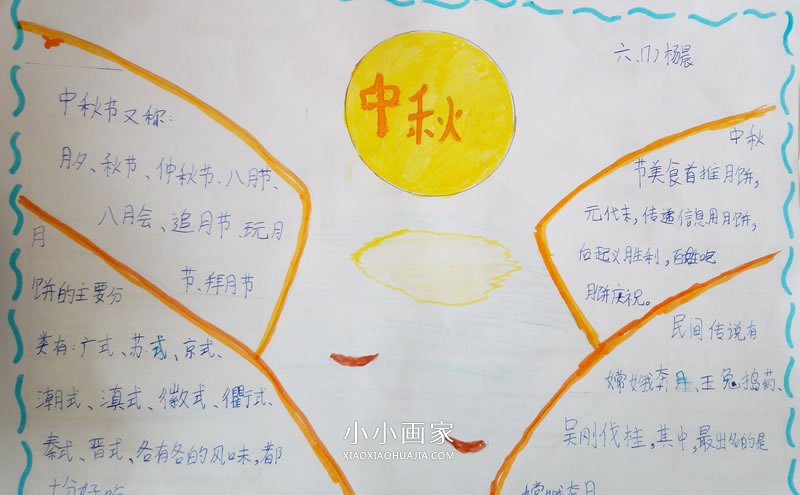 六.(7)杨晨
中秋
中秋节又称:
月夕、秋节、仲秋节、八月节、
八月会、追月节、玩月
节、拜月节
月
饼的主要分
类有:广式、苏式、京式、
潮式、滇式、徽式、衢式、
秦式、晋式、各有各的风味,都
十分好吃
中秋
节美食首推月饼,
元代末,传递信息用月饼,
后起义胜利,百姓吃
月饼庆祝。
民间传说有
嫦娥奔月、玉兔捣药、
吴刚伐桂,其中,最出名的是
嫦娥奔月
小小画家
XIAOXIAOHUAJIA.COM